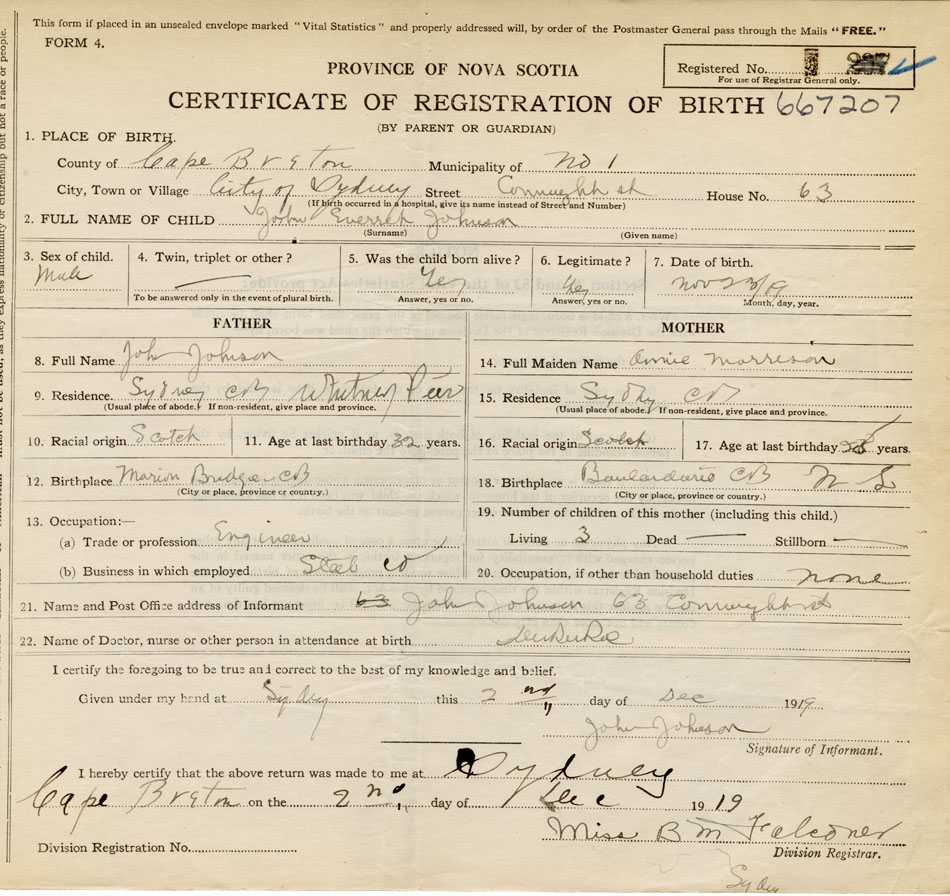 This form if placed in an unsealed envelope marked "Vital Statistics" and properly addressed will, by order of the Postmaster General pass through the Mails "FREE."
FORM 4.
Registered No.
For use of Registrar General only.
PROVINCE OF NOVA SCOTIA
CERTIFICATE OF REGISTRATION OF BIRTH 667207
(BY PARENT OR GUARDIAN)
1. PLACE OF BIRTH.
County of Cape Breton Municipality of No 1
City, Town or Village City of Sydney Street Connught st House No. 63
(If birth occurred in a hospital, give its name instead of Street and Number)
2. FULL NAME OF CHILD John Everret Johnson
(Surname) (Given name)
3. Sex of child. Male 4. Twin, triplet or other? 5. Was the child born alive? Yes 6. Legitimate? Yes 7. Date of birth. Nov 23/19
To be answered only in the event of plural birth. Answer, yes or no. Answer, yes or no. Month, day, year.
FATHER
8. Full Name John Johnson
9. Residence. Sydney CB Whitney Pier
(Usual place of abode. If non-resident, give place and province.
10. Racial origin Scotch 11. Age at last birthday 32 years.
12. Birthplace Marion Bridge CB
(City or place, province or country.)
13. Occupation:—
(a) Trade or profession Engineer
(b) Business in which employed Steel Co
MOTHER
14. Full Maiden Name Annie Morreson
15. Residence Sydny CB
(Usual place of abode. If non-resident, give place and province.
16. Racial origin Scotch 17. Age at last birthday years.
18. Birthplace CB N S
(City or place, province or country.)
19. Number of children of this mother (including this child.)
Living 3 Dead — Stillborn —
20. Occupation, if other than household duties none
21. Name and Post Office address of Informant 63 John Johnson 63 Connught st
22. Name of Doctor, nurse or other person in attendance at birth
I certify the foregoing to be true and correct to the best of my knowledge and belief.
Given under my hand at Sydney this 2nd day of Dec 1919
John Johnson
Signature of Informant.
I hereby certify that the above return was made to me at Sydney
Cape Breton on the 2nd day of Dec 1919
Miss B M Falconer
Division Registration No. Division Registrar.
Sydney